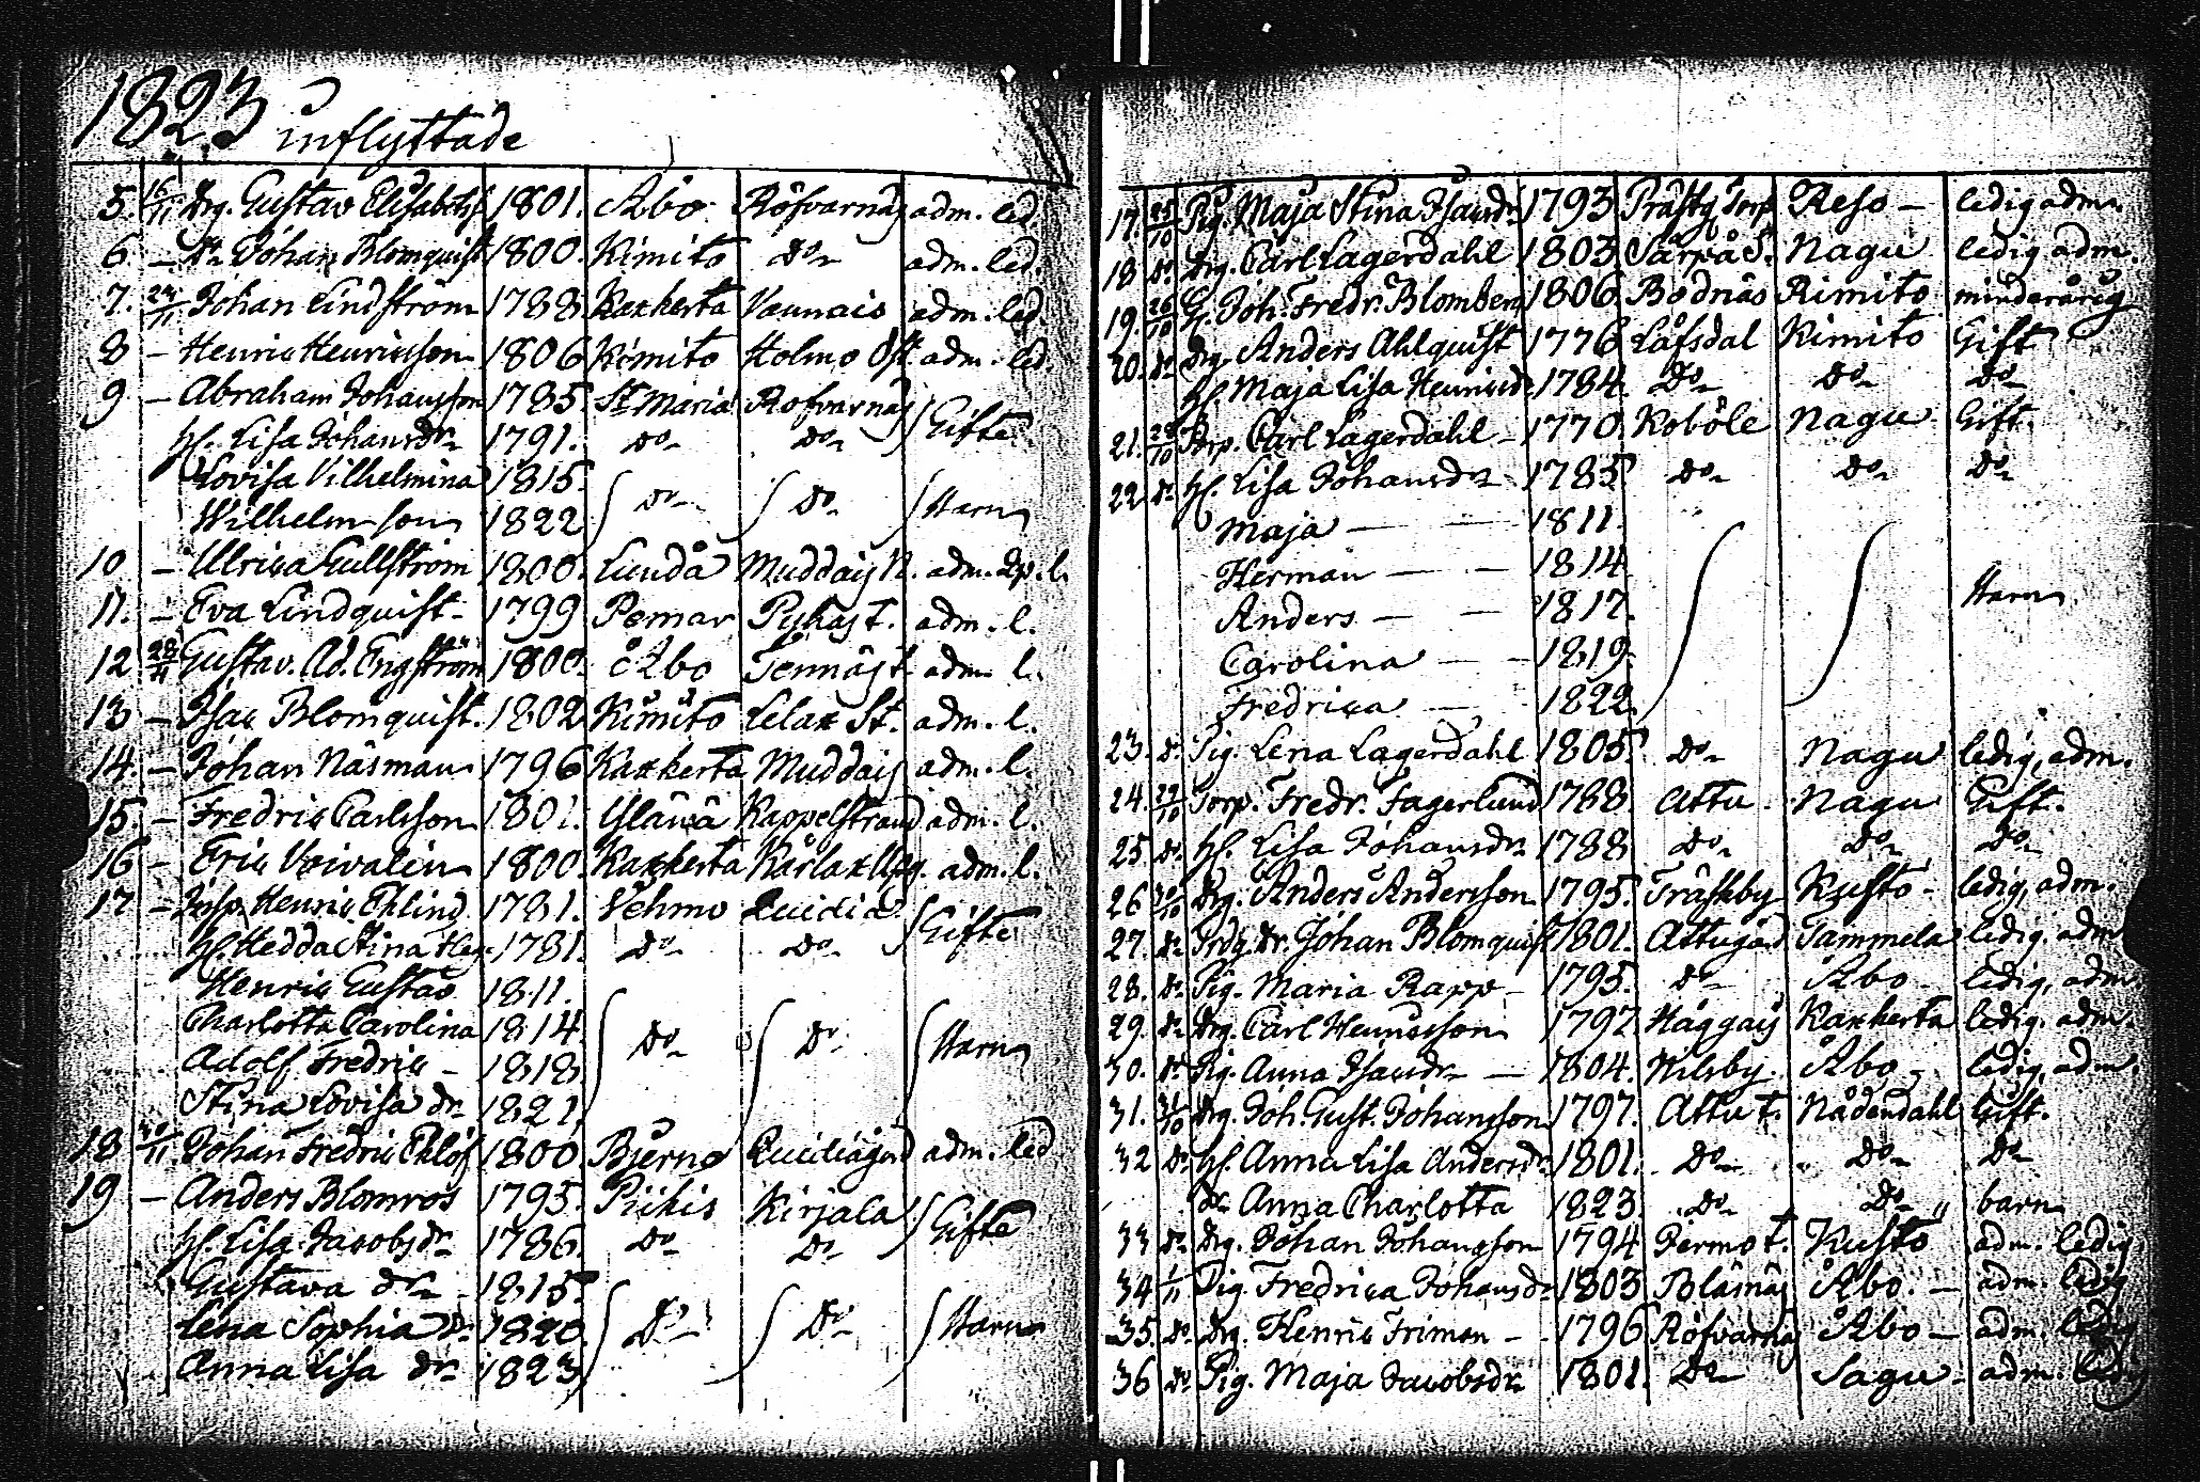 1823 inflyttade
5. 16/11 Drg. Gustav Elisabetss 1801. Åbo Röfvarnäs adm. led.
6. — Dr Johan Blomquist 1800. Kimito do adm. led.
7. 23/11 Johan Lindström 1788. Kaxkerta Vannais adm. led.
8 — Henric Henricsson 1806 Kimito Holmo Öst. adm. led.
9 — Abraham Johansson 1785. St Maria Rofvarnäs Gifte
Hl. Lisa Johansdr 1791. do do
Lovisa Vilhelmina 1815.
Wilhelm son 1822 do do Barn
10 — Ulrica Gullström 1800. Lundå Muddais N. adm. l.
11. — Eva Lindquist 1799 Pemar Pyhäs t. adm. l.
12 28/11 Gustav. Ad. Engström 1800. Åbo Tennäs t. adm. l.
13 — Isac Blomquist. 1802 Kimito Lelax St. adm. l.
14. — Johan Näsman 1796 Kaxkerta Muddais adm. l.
15. — Fredric Carlsson 1801. Yläná Kappelstrand adm. l.
16 — Eric Voivalin 1800. Kaxkerta Kärlax Upg. adm. l.
17 — Insp. Henric Ehlind 1781. Vehmo Qvidia Gifte
Hl. Hedda Stina 1781. do do
Henric Gustav 1811.
Charlotta Carolina 1814.
Adolf Fredric — 1818 do do Barn
Stina Lovisa dr 1821,
18 30/11 Johan Fredric Eklöf 1800. Bjerno Qvidiagård adm. led
19 — Anders Blomros 1795. Piikis Kirjala Gifte
Hl. Lisa Jacobsdr 1786. do do
Gustava dr 1815.
Lena Sophia dr 1820. do do Barn
Anna Lisa dr 1823
17. 25/10 Pig. Maja Stina Isacsdr 1793 Prästg. Torp Reso — ledig adm.
18 do Drg. Carl Lagerdahl 1803. Särpå S. Nagu ledig adm.
19. 26/10 G. Joh. Fredr. Blomberg 1806. Bodnäs Rimito minderårig
20. do Drg. Anders Ahlquist 1776 Låfsdal Kimito Gift
Hl. Maja Lisa Henricsdr. 1784. do do do
21. 28/10 Torp. Carl Lagerdahl — 1770. Koböle Nagu Gift.
22 do Hl. Lisa Johansdr 1785 do do do
Maja — — 1811.
Herman — — 1814
Anders — — 1817. Barn
Carolina — — 1819.
Fredrica — 1822.
23. do Pig. Lena Lagerdahl 1805. do Nagu ledig, adm.
24. 29/10 Torp. Fredr. Fagerlund 1788. Attu. Nagu Gift.
25 do Hl. Lisa Johansdr 1788 do do do
26 30/10 Drg. Anders Andersson 1795. Träskby Kustö — ledig, adm.
27. do Dr. Johan Blomquist 1801. Attugård Tammela ledig. adm
28. do Pig. Maria Rapp — 1795. do Åbo — ledig, adm
29. do Drg. Carl Henricsson 1792 Häggais Kaxkerta ledig. adm.
30. do Pig. Anna Isacsdr — 1804. Nilsby. Åbo — ledig, adm.
31. 31/10 Drg. Joh. Gust. Johansson 1797. Attu t. Nådendahl Gift.
32 do Hl. Anna Lisa Andersdr 1801. do do do
dr Anna Charlotta 1823. do do barn
33 do Drg. Johan Johansson 1794 Permo t. Kusto adm. ledig
34 1/11 Pig. Fredrica Johansdr 1803 Bläsnäs Åbo. — adm. ledig
35. do Drg. Henric Friman — 1796 Röfvarnäs Åbo — adm. ledig
36 do Pig. Maja Jacobsdr 1801. do Sagu — adm. ledig